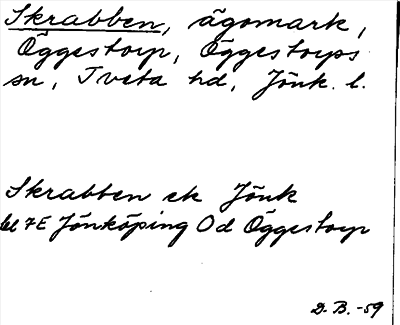 Skrabben, ägomark,
Öggestorp, Öggestorps
sn, Tveta hd, Jönk. l.
Skrabben ek Jönk
bl 7E Jönköping Od Öggestorp
D. B. -59